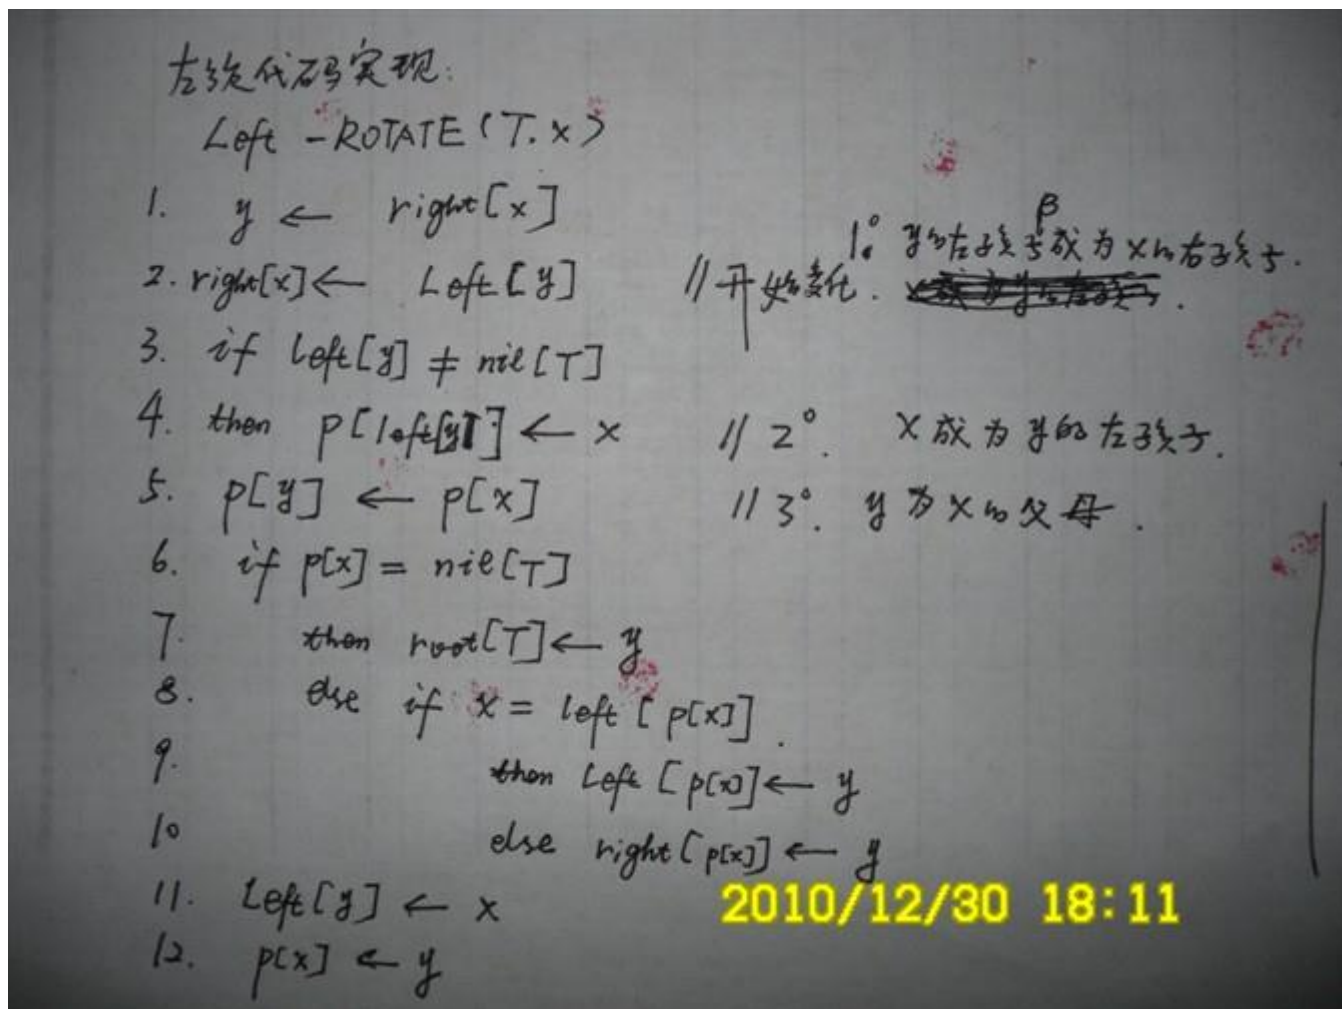 左旋代码实现:
Left -ROTATE(T.x)
1. y ← right[x]
β
1°. y的左孩子成为x的右孩子.
2. right[x] ← Left[y] //开始变化.
3. if left[y] ≠ nil[T]
4. then p[left[y]] ← x //2°. x成为y的左孩子.
5. p[y] ← p[x] //3°. y为x的父母.
6. if p[x] = nil[T]
7. then root[T] ← y
8. else if x = left[p[x]].
9. then left[p[x]] ← y
10 else right[p[x]] ← y
11. Left[y] ← x
12. p[x] ← y
2010/12/30 18:11